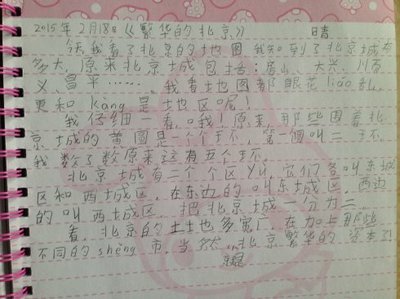 2015年2月18日《繁华的北京》 晴
今天我看了北京的地图我知到了北京城有
多大,原来北京城包括:房山、大兴、川页
义、昌平……。我看地图都眼花liáo乱,
更和kàng是地区呢!
我仔细一看。哦!原来,那些围着北
京城的黄圆是一个个环,第一個叫二环
我数了数原来这有五个环。
北京城有二个个区yù,它们各叫东城
区和西城区,在东边的叫东城区,西边
的叫西城区,把北京城一分为二
看,北京的土土也多宽广,在加上那些
不同的shèng市,当然,北京繁华的